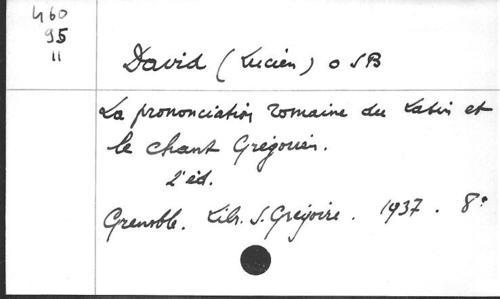 460
95
11
David (Lucien) o SB
La prononciation romaine du Latin et
le chant Grégorien.
2e éd.
Grenoble. Libr. S. Grégoire. 1937. 8°